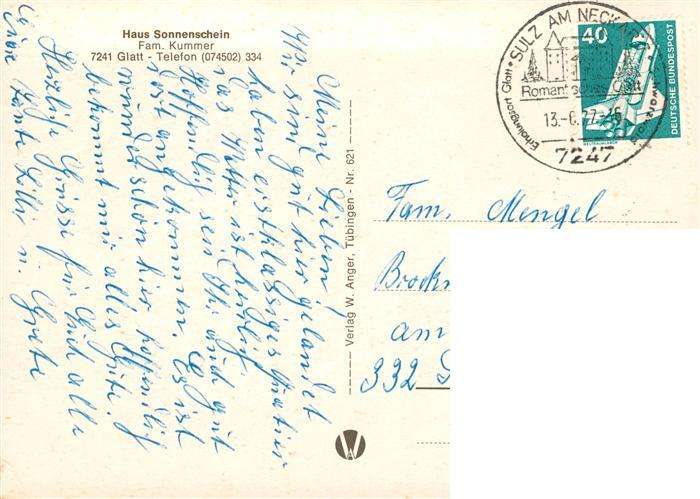 Haus Sonnenschein
Fam. Kummer
7241 Glatt - Telefon (074502) 334
Meine Lieben!
Wir sind gut hier gelandet
haben erstklassiges Quartier
das Wetter ist herrlich
Hoffentlich seid Ihr auch gut
dort angekommen. Es ist
wunderschön hier hoffentlich
bekommt mir alles Gute.
Herzliche Grüsse für Euch alle
Eure Tante Lilli u. Grete
Verlag W. Anger, Tübingen - Nr. 621
SULZ AM NECKAR
Erholungsort Glatt
Schwarzwald
13.-6.77-16
7247
40
DEUTSCHE BUNDESPOST
WELTRAUMLABOR
Fam. Mengel
Brock
am
332
W